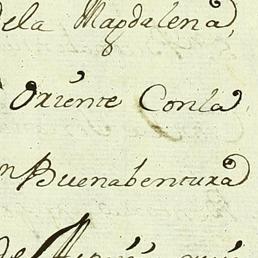 dela Magdalena,
Oriente Conla
Buenabentura
de